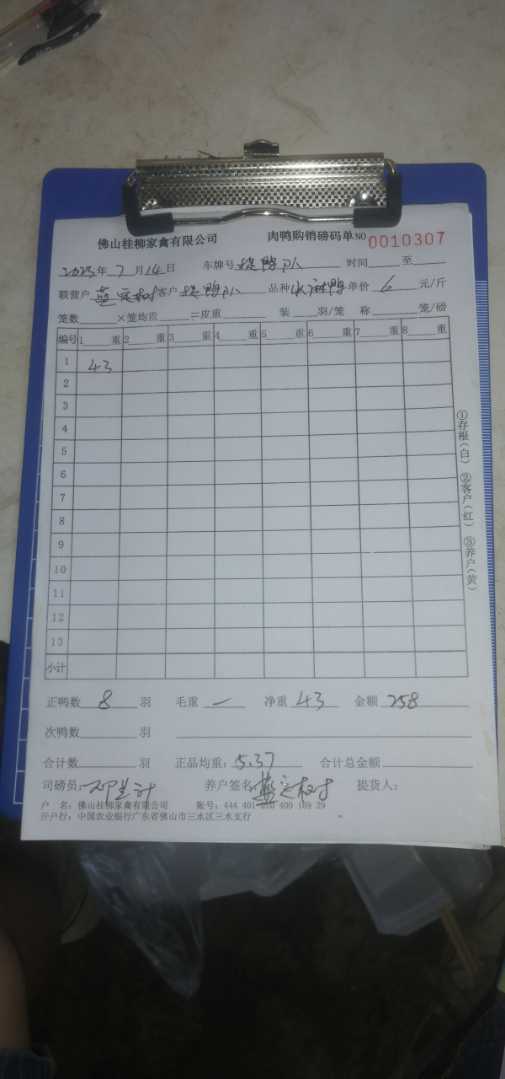 佛山桂柳家禽有限公司 肉鸭购销磅码单 NO 0010307
2025年 7月 14日 车牌号 捉鸭队 时间 至
联营户 客户 捉鸭队 品种 麻鸭 单价 6 元/斤
笼数 ×笼均皮 =皮重 装 羽/笼 称 笼/磅
编号 1 重 2 重 3 重 4 重 5 重 6 重 7 重 8 重
1 43
2
3
4
5
6
7
8
9
10
11
12
13
小计
①存根(白) ②客户(红) ③养户(黄)
正鸭数 8 羽 毛重 一 净重 43 金额 258
次鸭数 羽
合计数 羽 正品均重: 5.37 合计总金额
司磅员: 养户签名: 提货人:
户 名: 佛山桂柳家禽有限公司 账号: 444 401 409 169 29
开户行: 中国农业银行广东省佛山市三水区三水支行